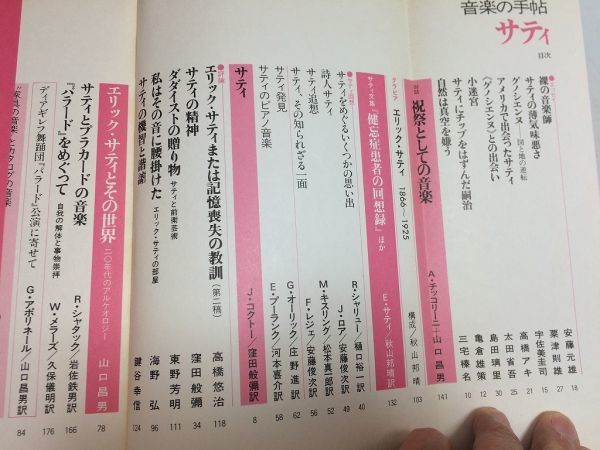 音楽の手帖
サティ
目次
●エッセイ
裸の音楽師 安藤元雄 18
サティの薄気味悪さ 粟津則雄 27
グノシエンヌ——図と地の逆転 宇佐美圭司 15
アメリカで出会ったサティ 高橋アキ 21
〈グノシエンヌ〉との出会い 太田省吾 25
小迷宮 島田璃里 30
サティにチップをはずんだ嗣治 亀倉雄策 12
自然は真空を嫌う 三宅榛名 10
対話 祝祭としての音楽 A・チッコリーニ—山口昌男 141
グラビア エリック・サティ 1866〜1925 構成/秋山邦晴 103
サティ文集『健忘症患者の回想録』ほか E・サティ/秋山邦晴訳 132
●サティ追想
サティをめぐるいくつかの思い出 R・シャリュー/樋口裕一訳 40
詩人サティ J・ロア/安藤俊次訳 49
サティ追想 M・キスリング/松本真一郎訳 52
サティ、その知られざる一面 F・レジェ/安藤俊次訳 56
サティ発見 G・オーリック/庄野進訳 62
サティのピアノ音楽 E・プーランク/河本喜介訳 58
サティ J・コクトー/窪田般彌訳 8
●評論
エリック・サティまたは記憶喪失の教訓(第二稿) 高橋悠治 118
サティの精神 窪田般彌 34
ダダイストの贈り物 サティと前衛芸術 東野芳明 111
私はその音に腰掛けた エリック・サティの部屋 海野弘 96
サティの機智と諧謔 鍵谷幸信 124
エリック・サティとその世界 二〇年代のアルケオロジー 山口昌男 78
サティとプラカードの音楽 R・シャタック/岩佐鉄男訳 166
『パラード』をめぐって 自我の解体と事物崇拝 W・メラーズ/久保儀明訳 176
ディアギレフ舞踊団『パラード』公演に寄せて G・アポリネール/山口昌男訳 84
“家具の音楽”とカタログの音楽